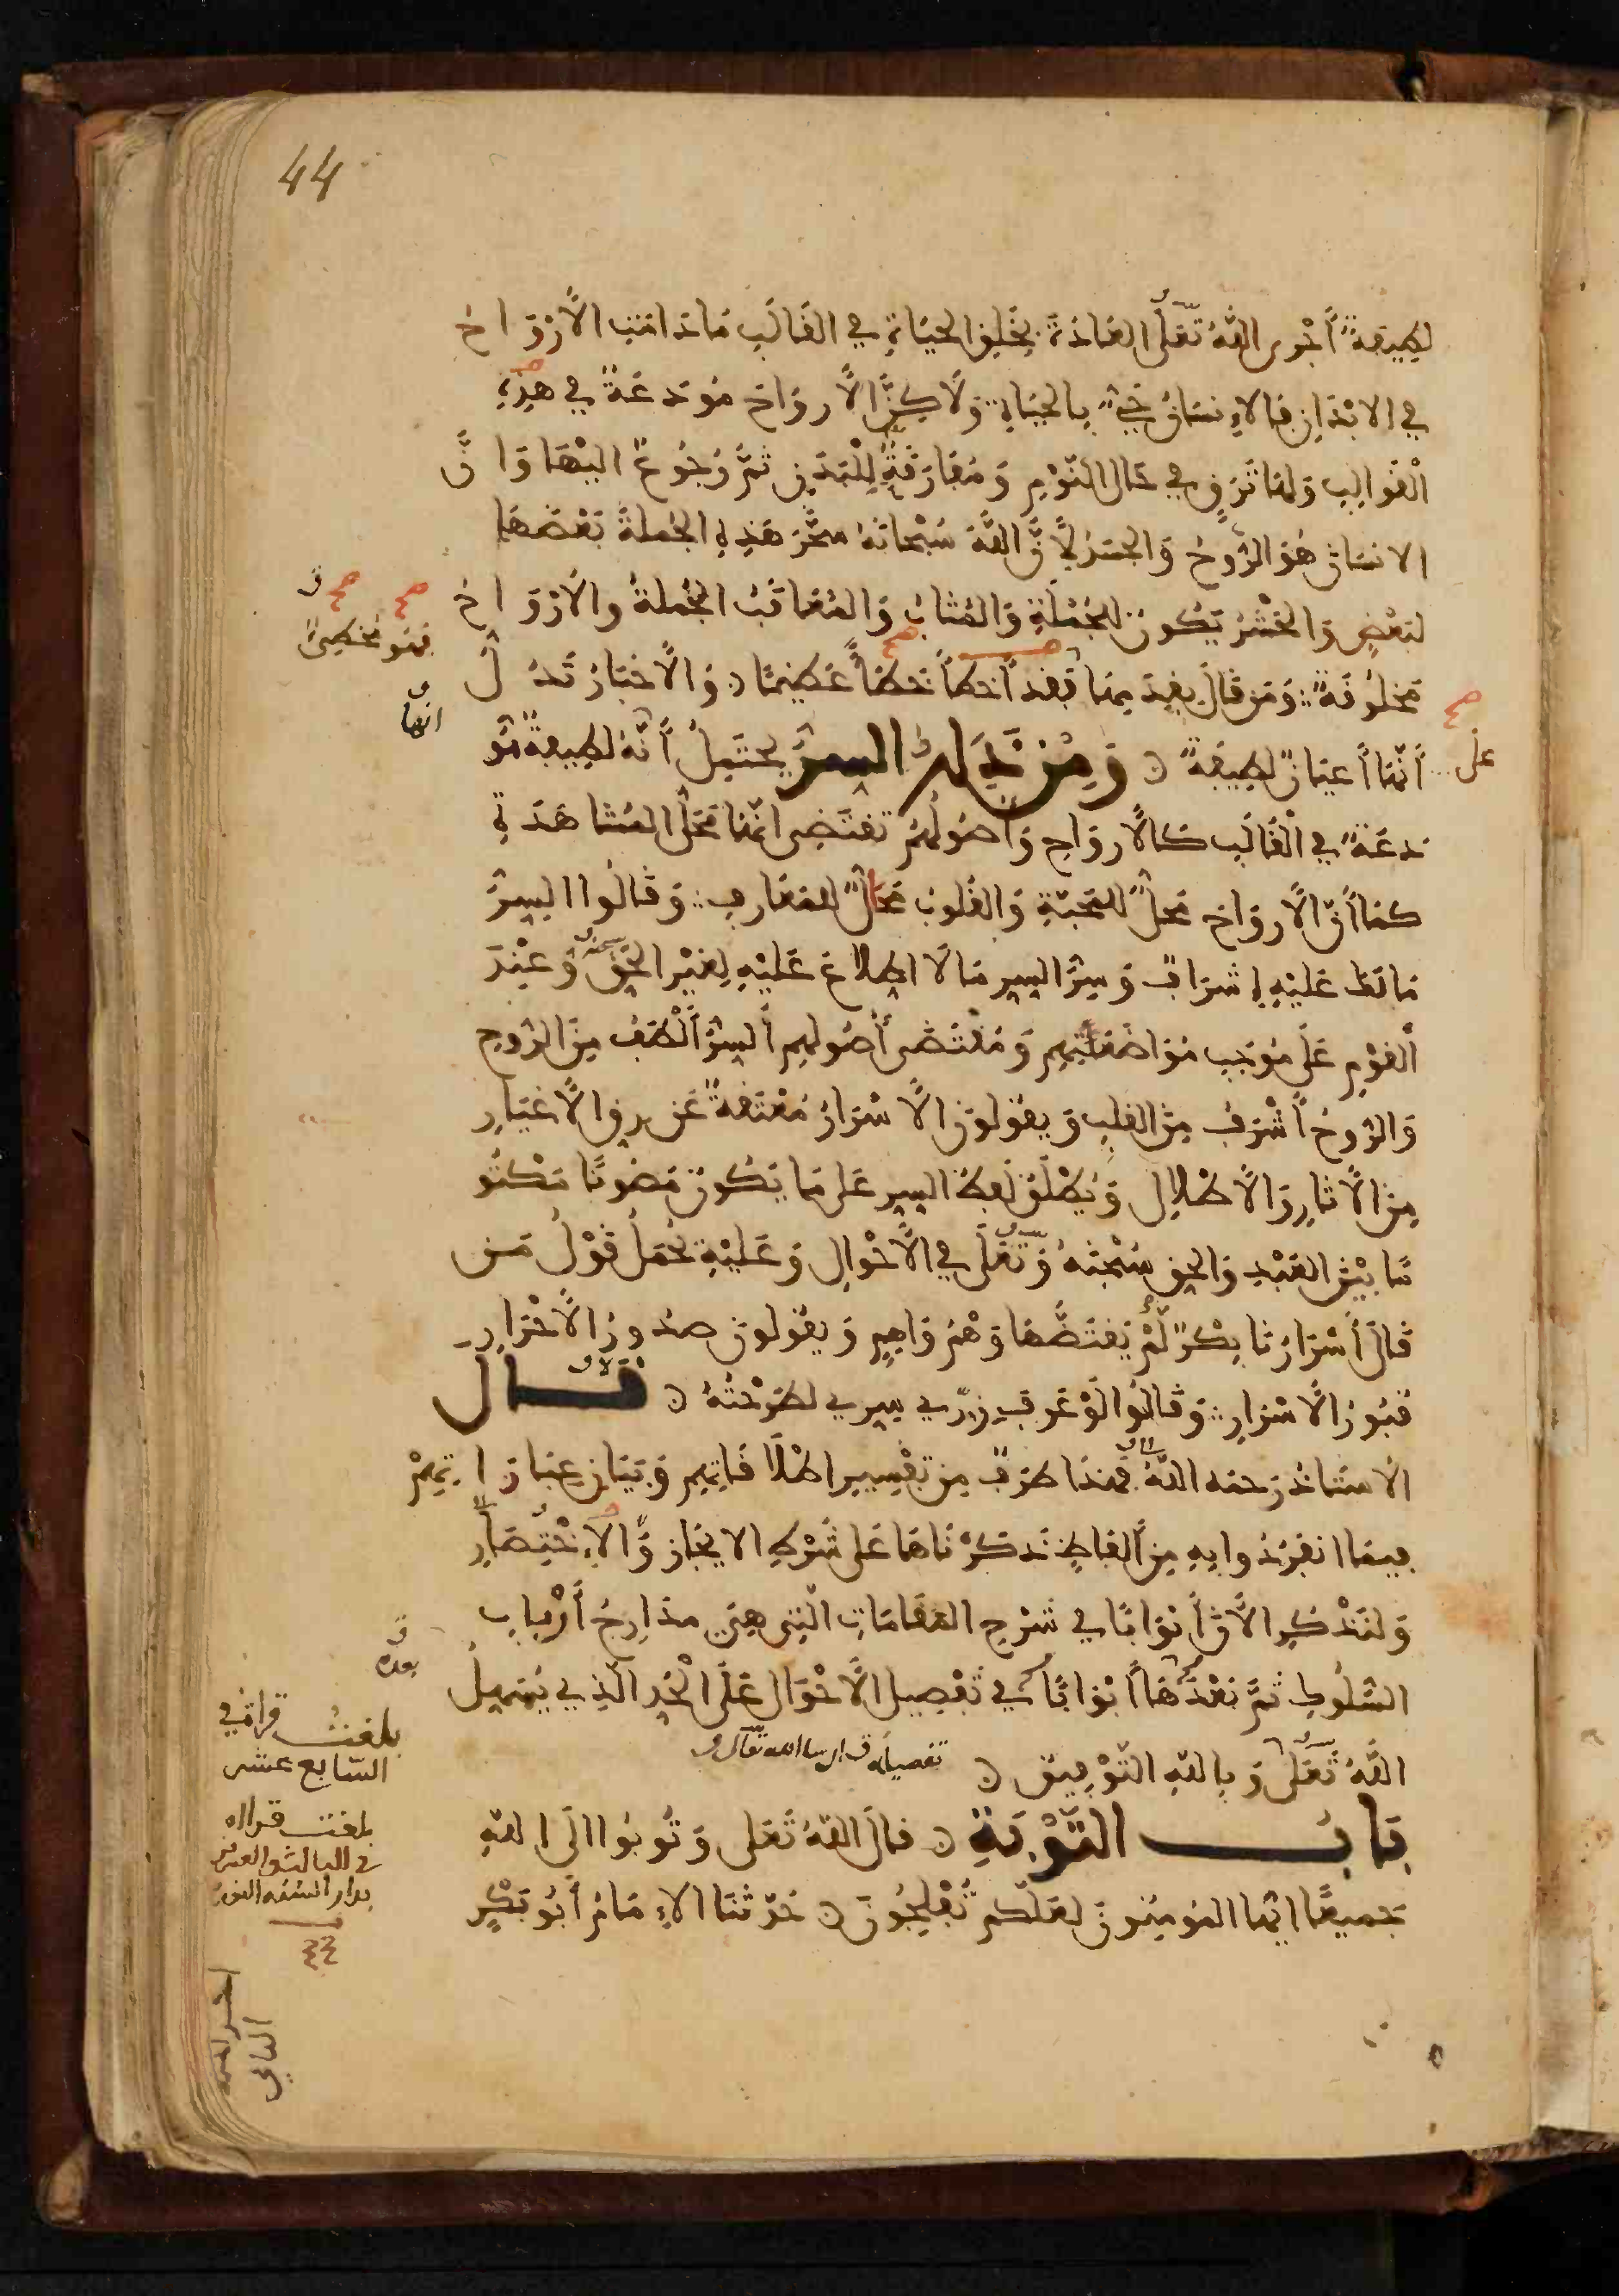 44
لطيفة أجرى الله تعلى العادة بخلق الحياة في القالب ما دامت الأرواح
في الابدان فالإنسان حي بالحياة ولاكن الأرواح مودعة في هذه
القوالب ولها ترق في حال النوم ومفارقة للبدن ثم رجوع اليها وان
الانسان هو الروح والجسد لأن الله سبحانه سخر هذه الجملة بعضها
لبعض والحشر يكون للجملة والمثاب والمعاقب الجملة والأرواح
مخلوقة ومن قال بقدمها فقد أخطأ خطأ عظيما والأخبار تدل
على
أنها أعيان لطيفة ومن ذلك السر يحتمل أنه لطيفة مو
دعة في القالب كالأرواح وأصولهم تقتضي انها محل المشاهدة
كما أن الأرواح محل للمحبة والقلوب محال للمعارف وقالوا السر
ما لك عليه إشراف وسر السر ما لا اطلاع عليه لغير الحق وعند
القوم على موجب مواضعتهم ومقتضى أصولهم السر ألطف من الروح
والروح أشرف من القلب ويقولون الأسرار معتقة عن رق الأغيار
من الآثار والأطلال ويطلق لفظ السر على ما يكون مصونا مكتو
ما بين العبد والحق سبحنه وتعلى في الأحوال وعليه يحمل قول من
قال أسرارنا بكر لم يفتضها وهم واهم ويقولون صدور الأحرار
قبور الأسرار وقالوا لو عرف زري سري لطرحته قال
الأستاذ رحمه الله فهذا طرف من تفسير اطلاقاتهم وبيان عباراتهم
فيما انفردوا به من ألفاظ ذكرناها على شرط الايجاز والإختصار
ولنذكر الآن أبوابا في شرح المقامات التي هي مدارج أرباب
السلوك ثم بعدها أبوابا في تفصيل الأحوال على الحد الذي يسهل
الله تعلى وبالله التوفيق
باب التوبة قال الله تعلى وتوبوا الى الله
جميعا ايها المومنون لعلكم تفلحون حدثنا الإمام أبو بكر
فهو مخطئ
انها
بعده
بلغت قراءتي
السابع عشر
بلغت قراءه